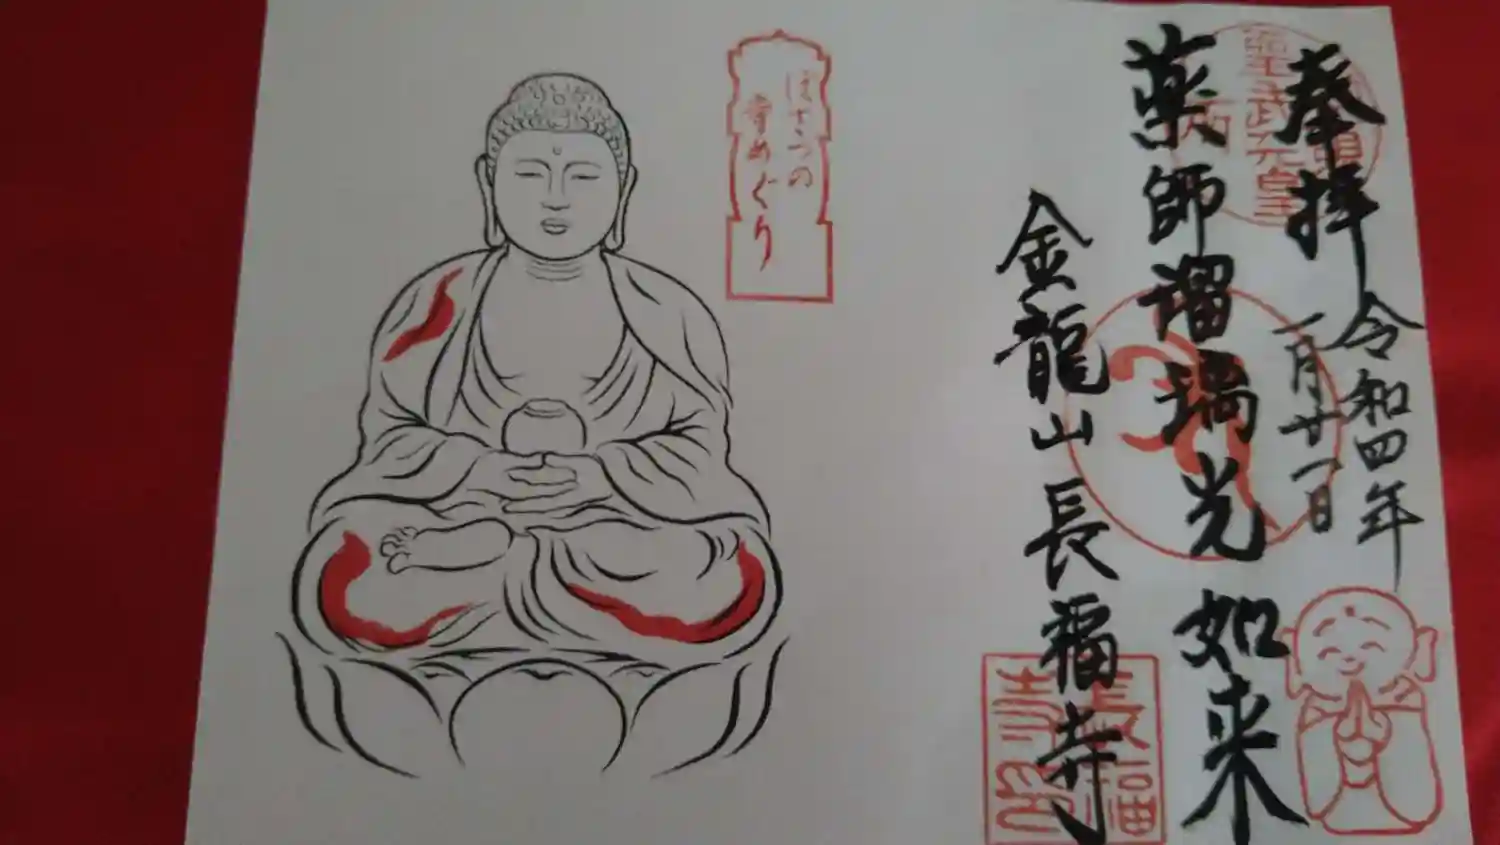 奉拝
令和四年
一月廿一日
薬師瑠璃光如来
金龍山 長福寺
聖武天皇
ほさつの
寺めぐり
長福